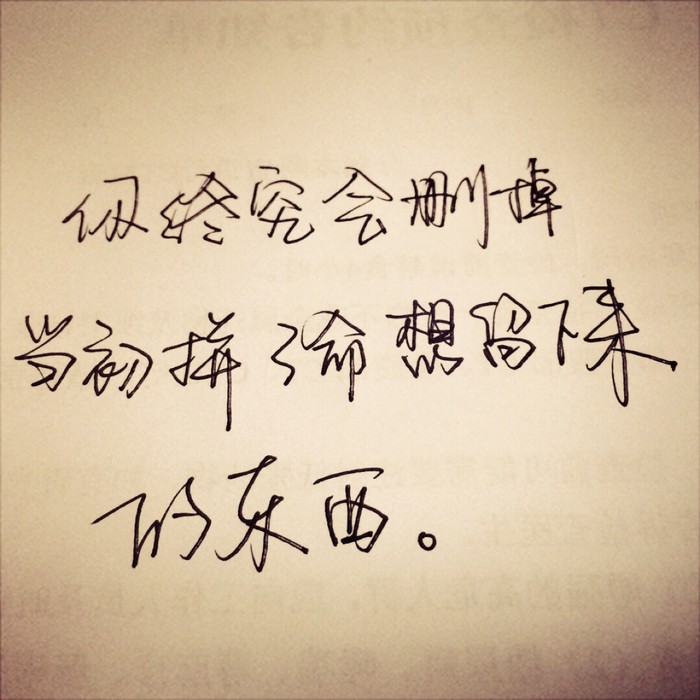 你终究会删掉
当初拼了命想留下来
的东西。